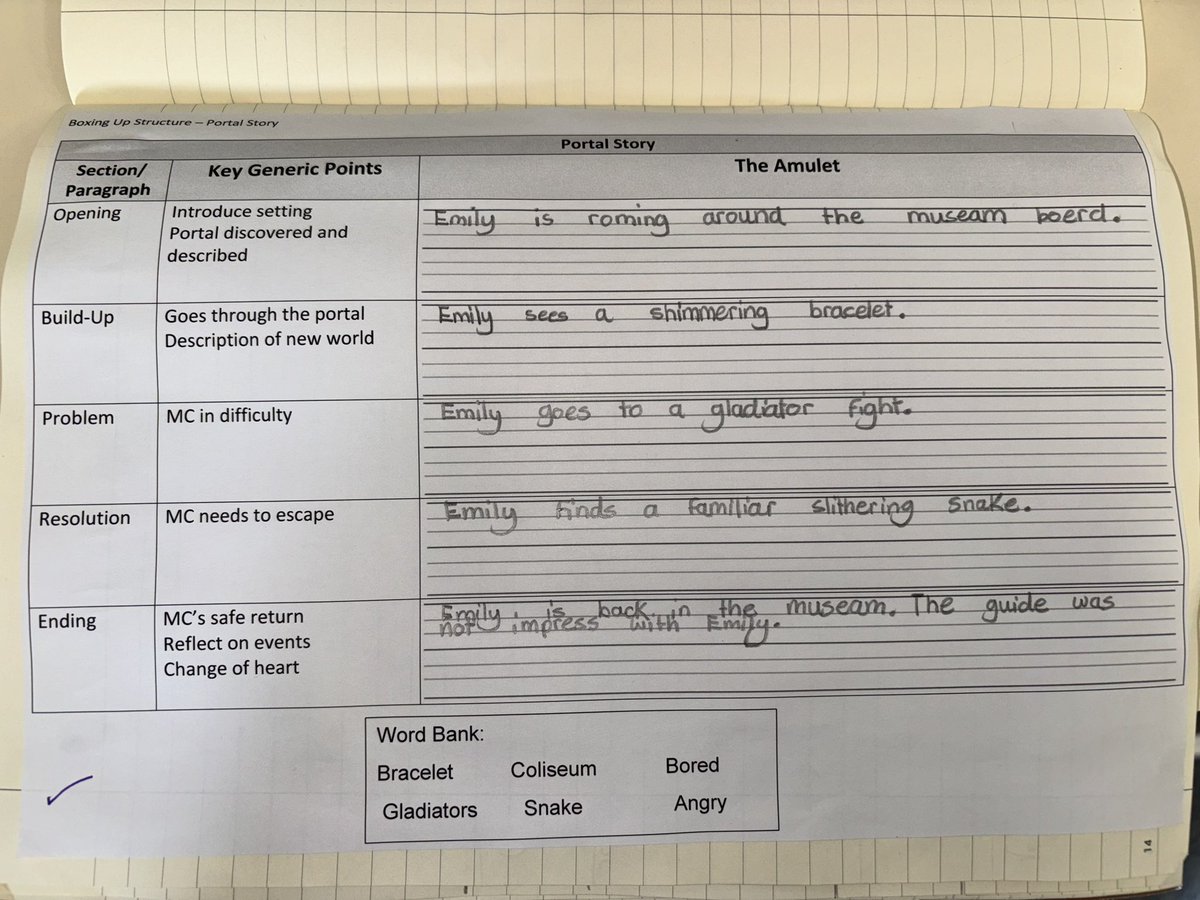 Boxing Up Structure – Portal Story
Portal Story
Section/
Paragraph
Key Generic Points
The Amulet
Opening
Introduce setting
Portal discovered and
described
Emily is roming around the museam boerd.
Build-Up
Goes through the portal
Description of new world
Emily sees a shimmering bracelet.
Problem
MC in difficulty
Emily goes to a gladiator fight.
Resolution
MC needs to escape
Emily finds a familiar slithering snake.
Ending
MC's safe return
Reflect on events
Change of heart
Emily is back in the museam. The guide was
not impress with Emily.
Word Bank:
Bracelet Coliseum Bored
Gladiators Snake Angry
14